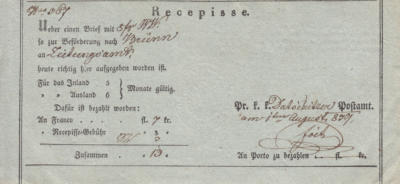 Recepisse.
Ueber einen Brief mit 5 fr W.W.
so zur Beförderung nach Brünn
an Zeitungsamt,
heute richtig hier aufgegeben worden ist.
Für das Inland 5
„ „ Ausland 6 } Monate gültig.
Dafür ist bezahlt worden:
An Franco . . . fl. 7 kr.
„ Recepisse-Gebühr „ 3 „
Zusammen . „ 13 „
Pr. k. k. Postamt.
am 1ten August 837
An Porto zu bezahlen fl. kr.